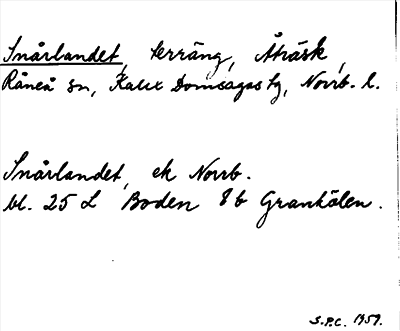 Snårlandet, terräng, Åträsk,
Råneå sn, Kalix Domsagas tg, Norrb. l.
Snårlandet, ek Norrb.
bl. 25 L Boden 8 b Grankölen.
S.P.C. 1959.